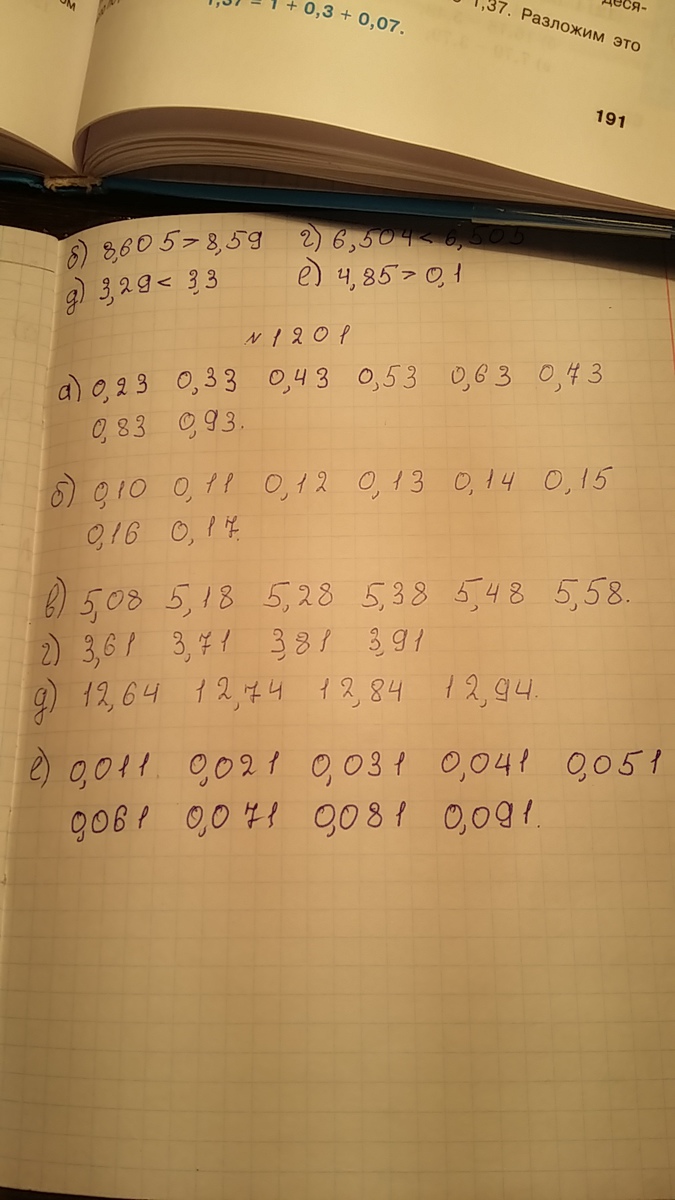 деся-
1,37. Разложим это
1,37 = 1 + 0,3 + 0,07.
191
б) 8,605 > 8,59 г) 6,504 < 6,505
д) 3,29 < 3,3 е) 4,85 > 0,1
№1201
а) 0,23 0,33 0,43 0,53 0,63 0,73
0,83 0,93.
б) 0,10 0,11 0,12 0,13 0,14 0,15
0,16 0,17.
в) 5,08 5,18 5,28 5,38 5,48 5,58.
г) 3,61 3,71 3,81 3,91
д) 12,64 12,74 12,84 12,94.
е) 0,011 0,021 0,031 0,041 0,051
0,061 0,071 0,081 0,091.